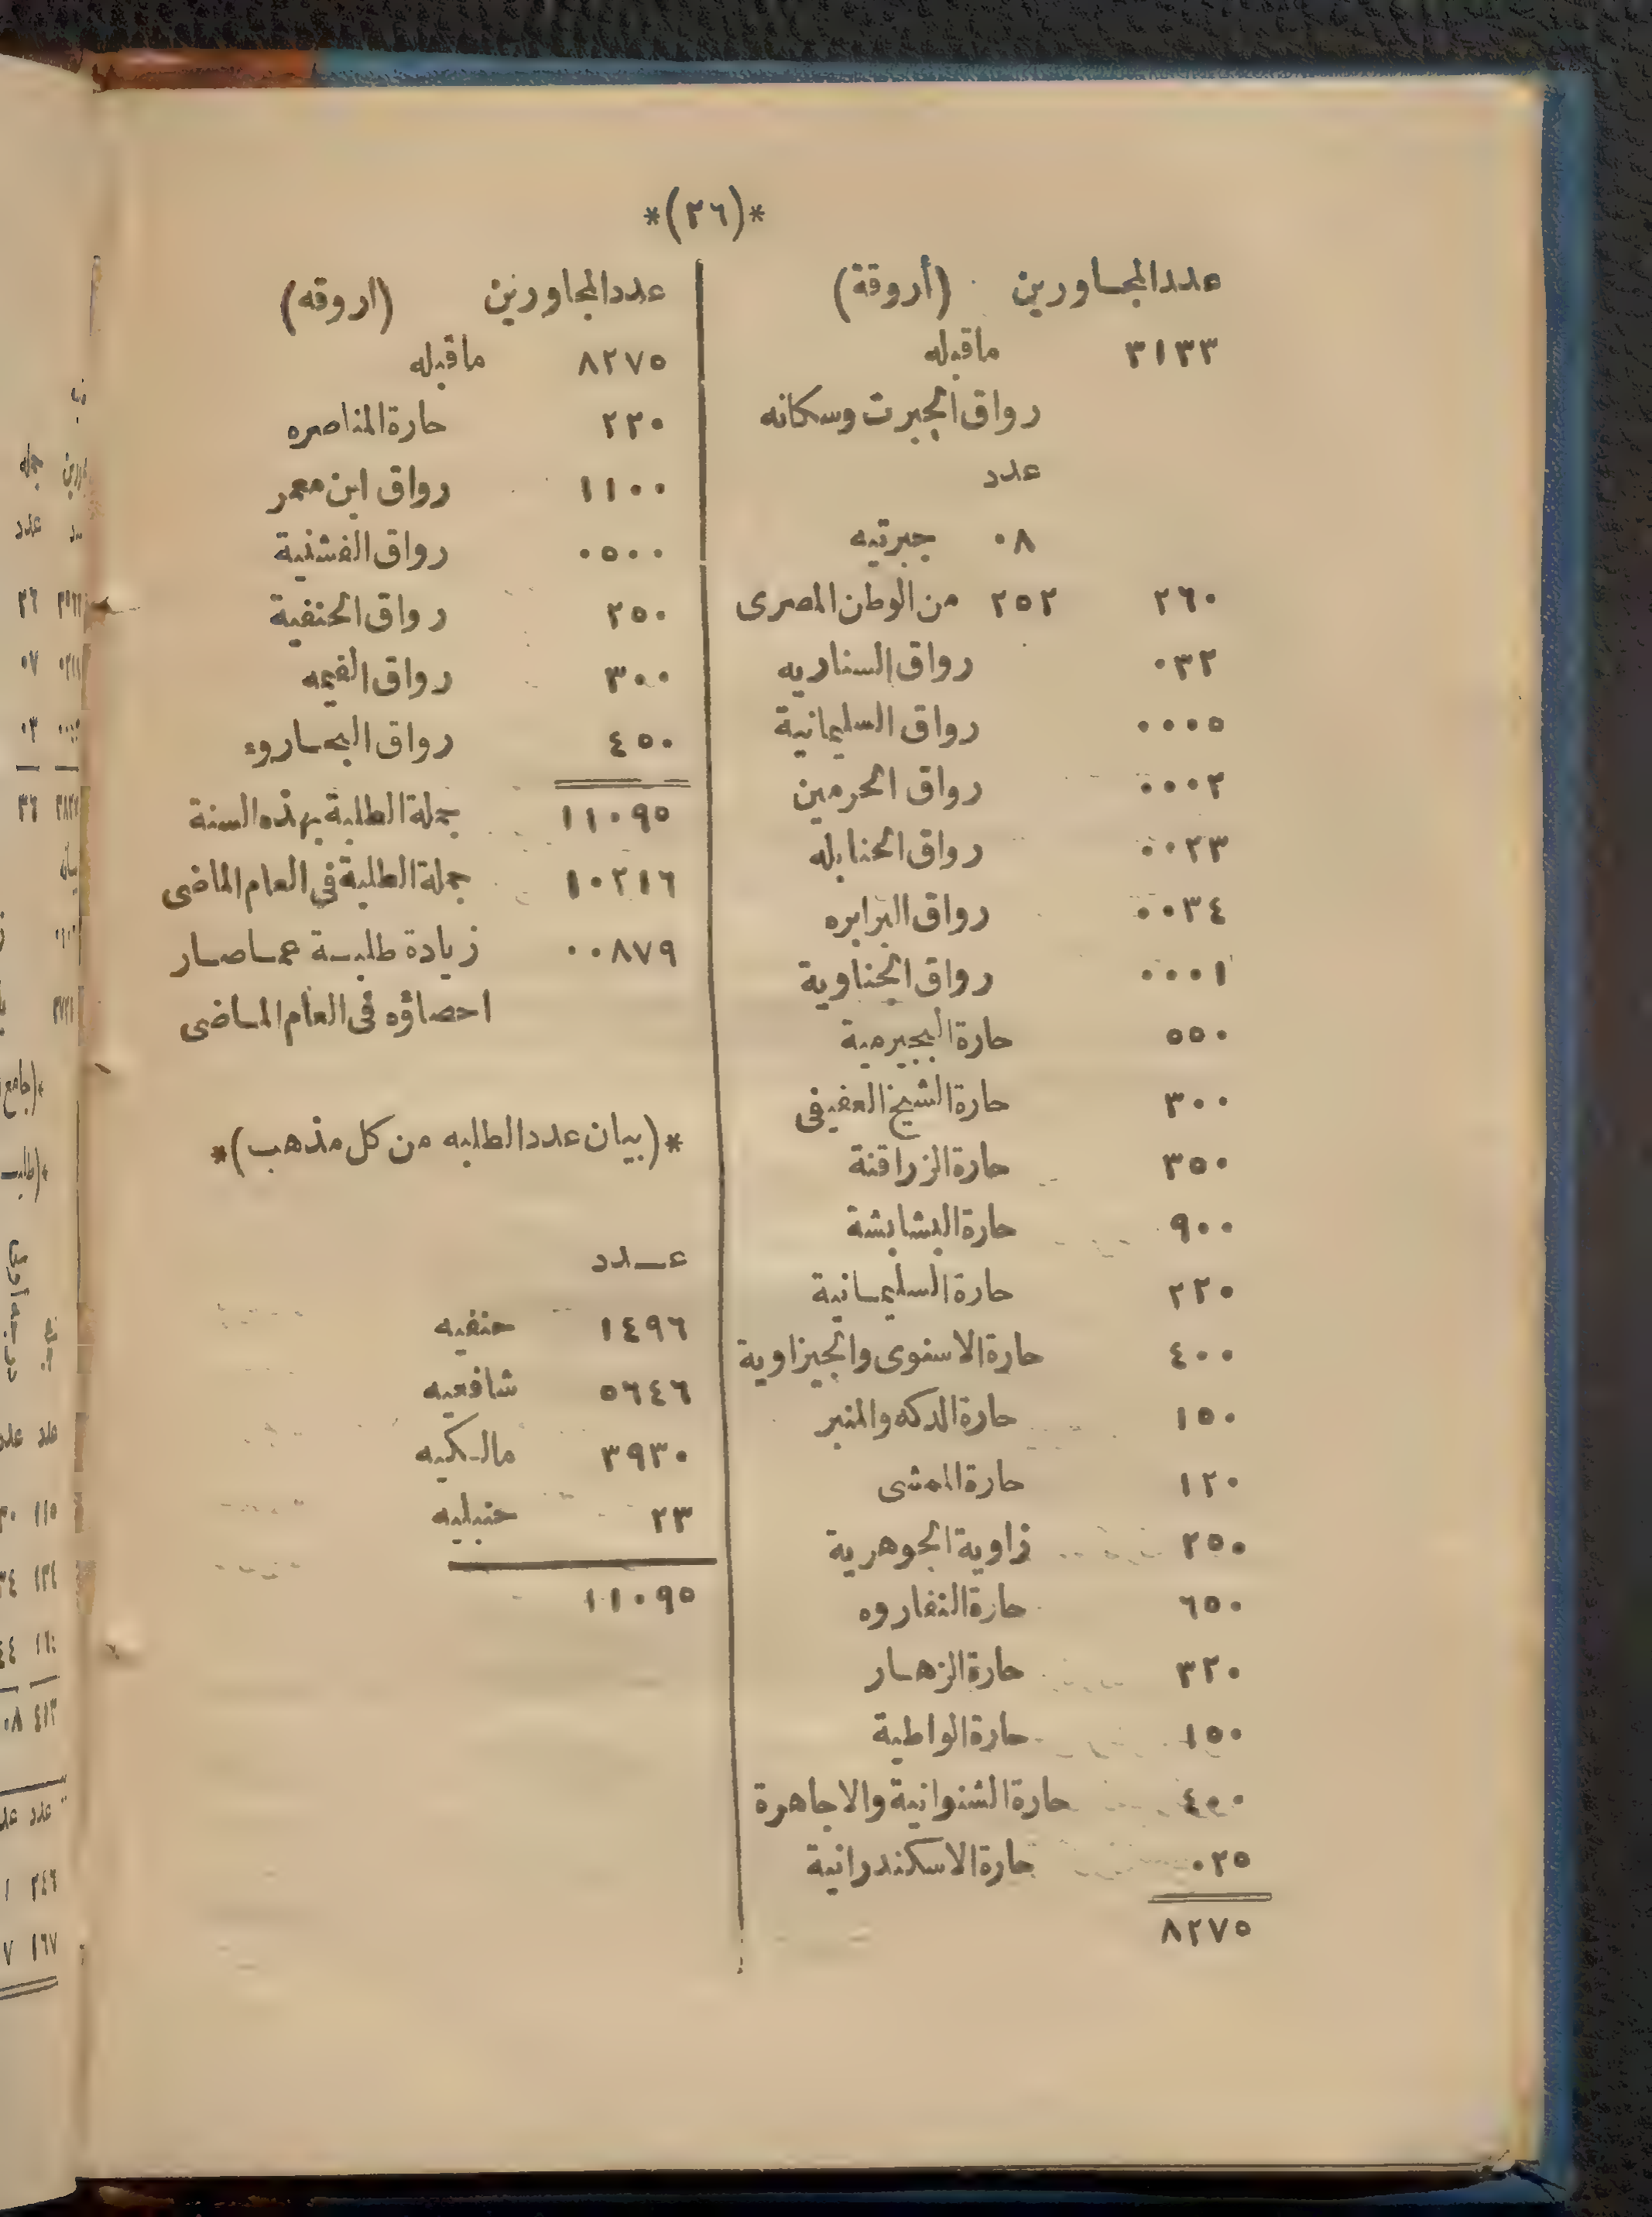 *(٢٦)*
عدد المجاورين (أروقة)
٣١٣٣ ماقبله
رواق الجبرت وسكانه
عدد
٠٨ جبرتيه
٢٦٠ ٢٥٢ من الوطن المصرى
٠٣٢ رواق السناريه
٠٠٠٥ رواق السليمانية
٠٠٠٢ رواق الحرمين
٠٠٢٣ رواق الحنابله
٠٠٣٤ رواق البرابره
٠٠٠١ رواق الجناوية
٥٥٠ حارة البجيرمية
٣٠٠ حارة الشيخ العفيفى
٣٥٠ حارة الزراقنة
٩٠٠ حارة البشابشة
٢٢٠ حارة السليمانية
٤٠٠ حارة الاسنوى والجيزاوية
١٥٠ حارة الدكه والمنبر
١٢٠ حارة الممشى
٢٥٠ زاوية الجوهرية
٦٥٠ حارة النفاروه
٣٢٠ حارة الزهار
١٥٠ حارة الواطية
٤٠٠ حارة الشنوانية والاجاهرة
٠٢٥ حارة الاسكندرانية
٨٢٧٥
عدد المجاورين (اروقه)
٨٢٧٥ ماقبله
٢٢٠ حارة المناصره
١١٠٠ رواق ابن معمر
٠٥٠٠ رواق الفشنية
٢٥٠ رواق الحنفية
٣٠٠ رواق الفيمه
٤٥٠ رواق البحاروه
١١٠٩٥ جملة الطلبة بهذه السنة
١٠٢١٦ جملة الطلبة فى العام الماضى
٠٠٨٧٩ زيادة طلبة عما صار
احصاؤه فى العام الماضى
*(بيان عدد الطلبه من كل مذهب)*
عدد
١٤٩٦ حنفيه
٥٦٤٦ شافعيه
٣٩٣٠ مالكيه
٢٣ حنبليه
١١٠٩٥